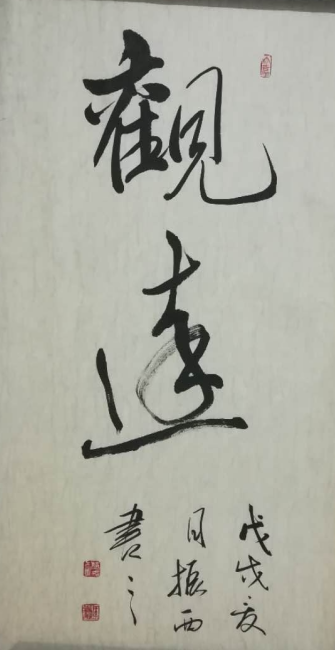 觀遠
戊戌夏
月振西
書之